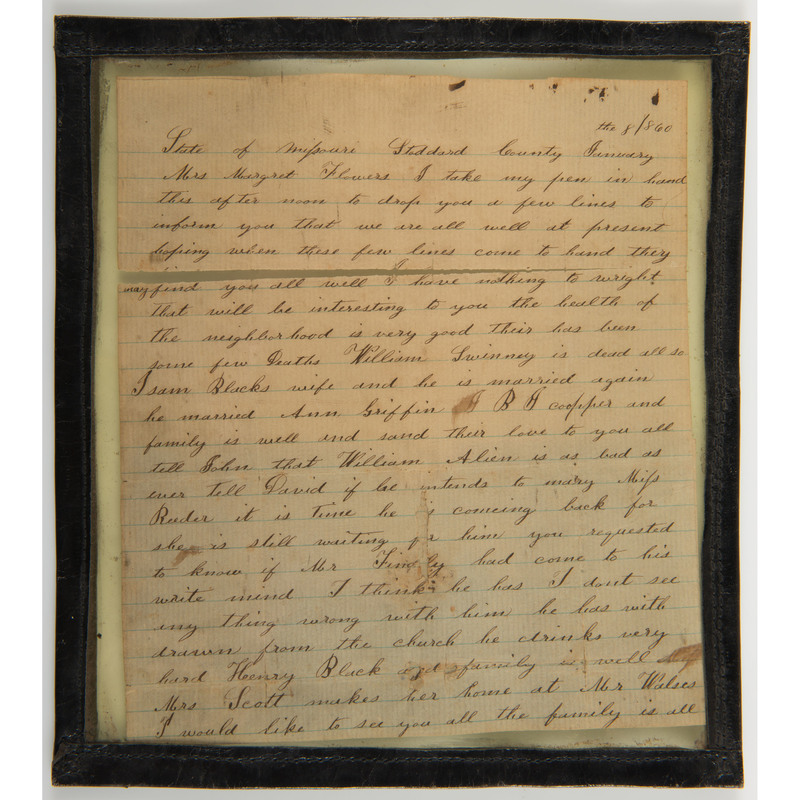 the 8/860
State of Missouri Stoddard County January
Mrs Margret Flowers I take my pen in hand
this after noon to drop you a few lines to
inform you that we are all well at present
hoping when these few lines come to hand they
may find you all well I have nothing to wright
that will be interesting to you the health of
the neighborhood is very good their has bun
some few Deaths William Swinney is dead all so
Isam Blacks wife and he is married again
he married Ann Griffin J B J coopper and
family is well and sand their love to you all
tell John that William Alien is as bad as
ever tell David if he intends to mary Miss
Reeder it is time he is comeing back for
she is still waiting for him you requested
to know if Mr had come to his
write mind I think he has I dont see
iny thing wrong with him he has with
drawn from the church he drinks very
hard Henry Black and family is well
Mrs Scott makes her home at Mr Walses
I would like to see you all the family is all